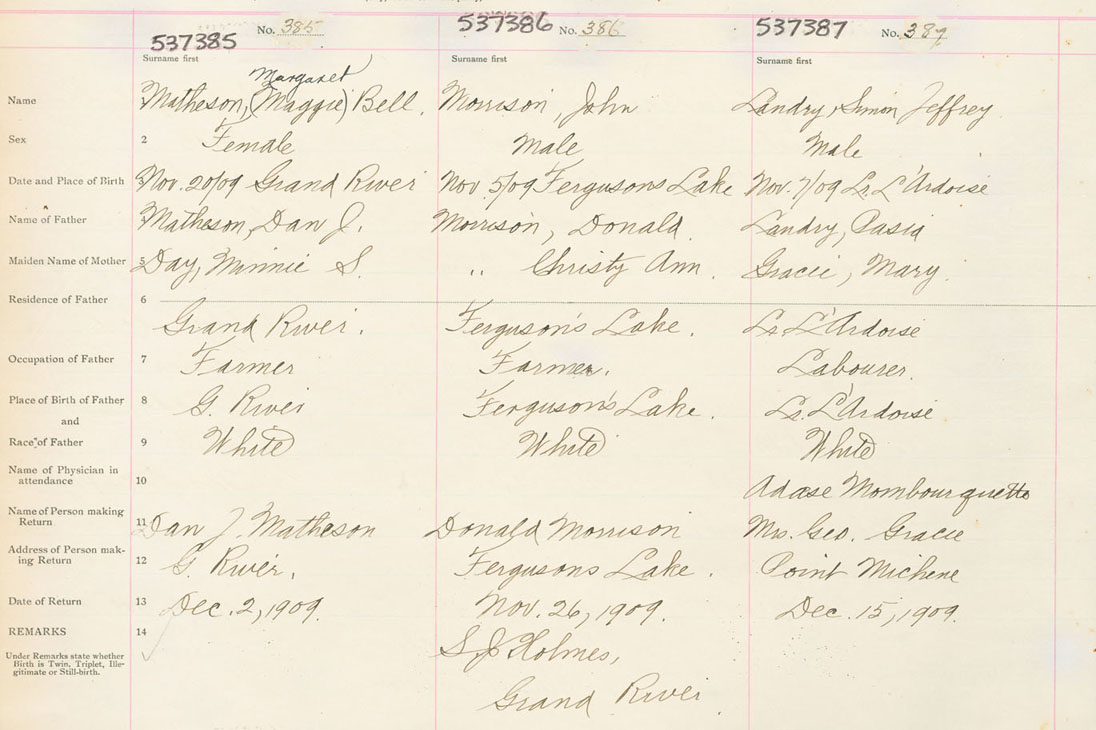 537385 No. 385 537386 No. 386 537387 No. 387
Surname first Surname first Surname first
Margaret
Name Matheson, (Maggie) Bell. Morrison, John Landry, Simon Jeffrey
Sex 2 Female Male Male
Date and Place of Birth 3 Nov. 20/09 Grand River Nov 5/09 Fergusons Lake Nov. 7/09 Lr. L'Ardoise
Name of Father 4 Matheson, Dan J. Morrison, Donald. Landry, Pasia
Maiden Name of Mother 5 Day, Minnie S. " Christy Ann. Gracie, Mary.
Residence of Father 6
Grand River. Ferguson's Lake. Lr L'Ardoise
Occupation of Father 7 Farmer Farmer. Labourer.
Place of Birth of Father 8 G. River Ferguson's Lake. Lr. L'Ardoise
and
Race of Father 9 White White White
Name of Physician in
attendance 10 Adase Mombourquette
Name of Person making
Return 11 Dan J. Matheson Donald Morrison Mrs. Geo. Gracie
Address of Person mak-
ing Return 12 G. River. Fergusons Lake. Point Michene
Date of Return 13 Dec. 2, 1909. Nov. 26, 1909. Dec. 15, 1909.
REMARKS 14
Under Remarks state whether
Birth is Twin, Triplet, Ille-
gitimate or Still-birth.
S J Holmes,
Grand River